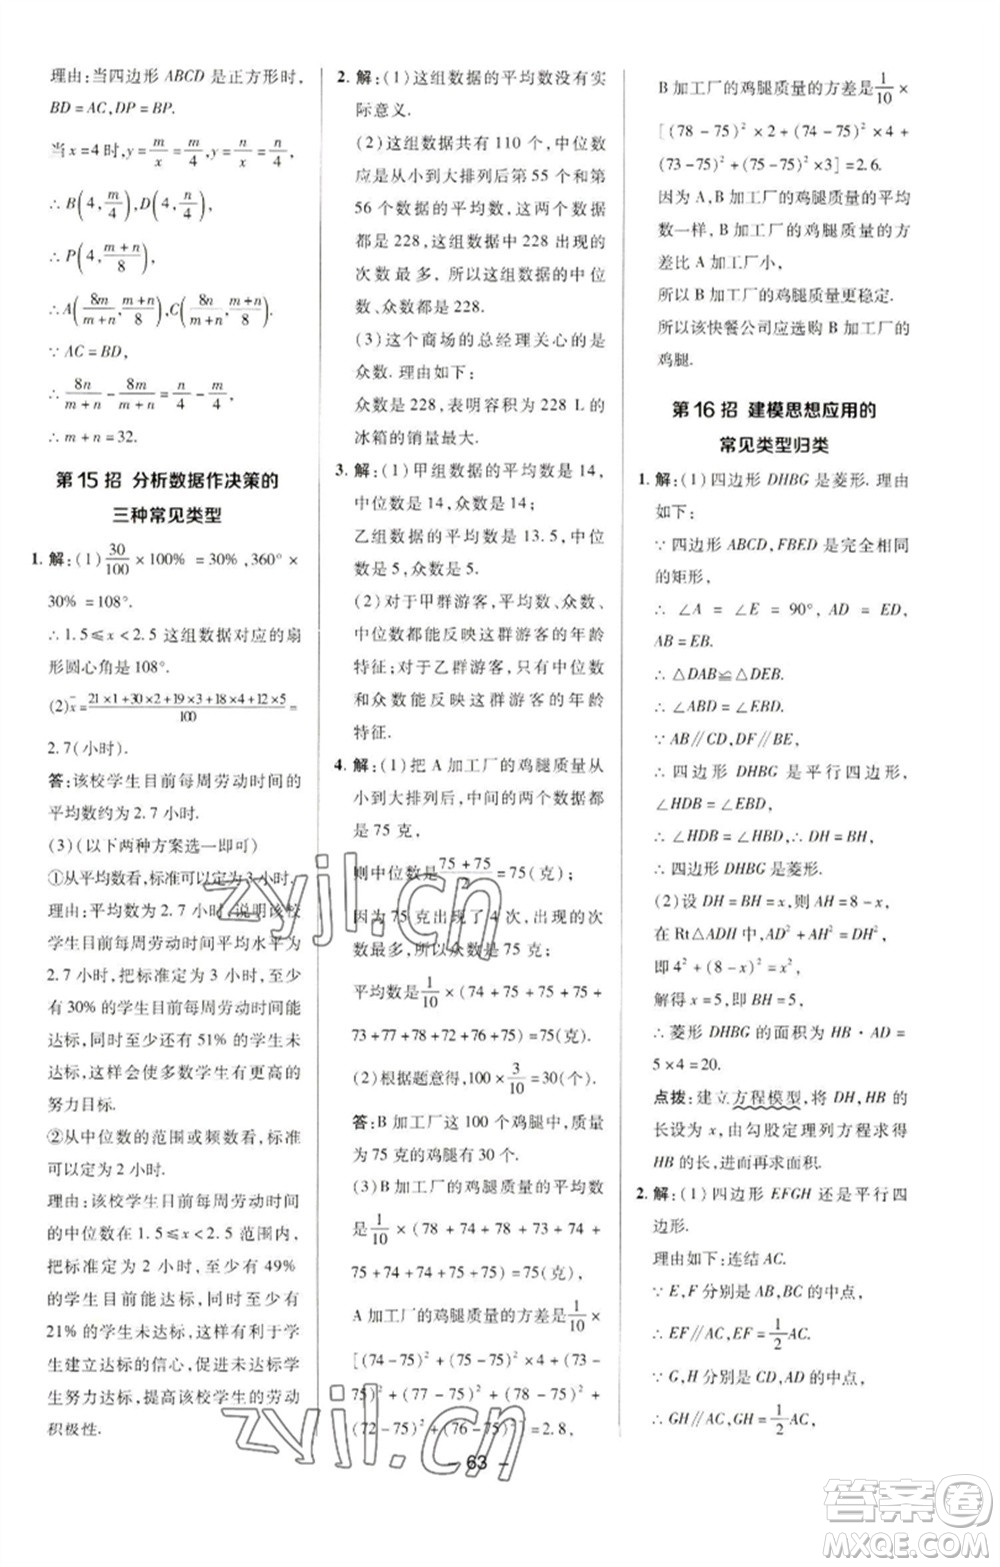 理由:当四边形 ABCD 是正方形时,
BD = AC, DP = BP.
当 x = 4 时, y = m/x = m/4, y = n/x = n/4,
∴ B(4, m/4), D(4, n/4),
∴ P(4, (m+n)/8),
∴ A(8m/(m+n), (m+n)/8), C(8n/(m+n), (m+n)/8).
∵ AC = BD,
∴ 8n/(m+n) − 8m/(m+n) = n/4 − m/4,
∴ m + n = 32.
第 15 招 分析数据作决策的
三种常见类型
1. 解:(1) 30/100 × 100% = 30%, 360° ×
30% = 108°.
∴ 1.5 ≤ x < 2.5 这组数据对应的扇
形圆心角是 108°.
(2) x̄ = (21×1+30×2+19×3+18×4+12×5)/100 =
2.7(小时).
答:该校学生目前每周劳动时间的
平均数约为 2.7 小时.
(3)(以下两种方案选一即可)
①从平均数看,标准可以定为 3 小时.
理由:平均数为 2.7 小时,说明该校
学生目前每周劳动时间平均水平为
2.7 小时,把标准定为 3 小时,至少
有 30% 的学生目前每周劳动时间能
达标,同时至少还有 51% 的学生未
达标,这样会使多数学生有更高的
努力目标.
②从中位数的范围或频数看,标准
可以定为 2 小时.
理由:该校学生目前每周劳动时间
的中位数在 1.5 ≤ x < 2.5 范围内,
把标准定为 2 小时,至少有 49% 的
学生目前能达标,同时至少还有
21% 的学生未达标,这样有利于学
生建立达标的信心,促进未达标学
生努力达标,提高该校学生的劳动
积极性.
2. 解:(1)这组数据的平均数没有实
际意义.
(2)这组数据共有 110 个,中位数
应是从小到大排列后第 55 个和第
56 个数据的平均数,这两个数据
都是 228,这组数据中 228 出现的
次数最多. 所以这组数据的中位
数、众数都是 228.
(3)这个商场的总经理关心的是
众数. 理由如下:
众数是 228,表明容积为 228 L 的
冰箱的销量最大.
3. 解:(1)甲组数据的平均数是 14,
中位数是 14,众数是 14;
乙组数据的平均数是 13.5,中位
数是 5,众数是 5.
(2)对于甲群游客,平均数、众数、
中位数都能反映这群游客的年龄
特征;对于乙群游客,只有中位数
和众数能反映这群游客的年龄
特征.
4. 解:(1)把 A 加工厂的鸡腿质量从
小到大排列后,中间的两个数据都
是 75 克,
则中位数是 (75+75)/2 = 75(克),
因为 75 克出现了 4 次,出现的次数
最多,所以众数是 75 克.
平均数是 1/10 × (74 + 75 + 75 + 75 +
73 + 77 + 78 + 72 + 76 + 75) = 75(克).
(2)根据题意得, 100 × 3/10 = 30(个).
答:B 加工厂这 100 个鸡腿中,质量
为 75 克的鸡腿有 30 个.
(3)B 加工厂的鸡腿质量的平均数
是 1/10 × (78 + 74 + 78 + 73 + 74 +
75 + 74 + 74 + 75 + 75) = 75(克),
A 加工厂的鸡腿质量的方差是 1/10 ×
[(74−75)² + (75−75)² × 4 + (73−
75)² + (77−75)² + (78−75)² +
(72−75)² + (76−75)²] = 2.8,
B 加工厂的鸡腿质量的方差是 1/10 ×
[(78−75)² × 2 + (74−75)² × 4 +
(73−75)² + (75−75)² × 3] = 2.6.
因为 A,B 加工厂的鸡腿质量的平均
数一样,B 加工厂的鸡腿质量的方
差比 A 加工厂小,
所以 B 加工厂的鸡腿质量更稳定.
所以该快餐公司应选购 B 加工厂的
鸡腿.
第 16 招 建模思想应用的
常见类型归类
1. 解:(1)四边形 DHBG 是菱形. 理由
如下:
∵ 四边形 ABCD, FBED 是完全相同
的矩形,
∴ ∠A = ∠E = 90°, AD = ED,
AB = EB.
∴ △DAB ≌ △DEB.
∴ ∠ABD = ∠EBD.
∵ AB∥CD, DF∥BE,
∴ 四边形 DHBG 是平行四边形,
∠HDB = ∠EBD.
∴ ∠HDB = ∠HBD, ∴ DH = BH,
∴ 四边形 DHBG 是菱形.
(2)设 DH = BH = x, 则 AH = 8 − x,
在 Rt△ADH 中, AD² + AH² = DH²,
即 4² + (8 − x)² = x²,
解得 x = 5, 即 BH = 5,
∴ 菱形 DHBG 的面积为 HB · AD =
5 × 4 = 20.
点拨:建立方程模型,将 DH, HB 的
长设为 x, 由勾股定理列方程求得
HB 的长,进而再求面积.
2. 解:(1)四边形 EFGH 还是平行四
边形.
理由如下:连结 AC.
∵ E, F 分别是 AB, BC 的中点,
∴ EF∥AC, EF = 1/2 AC.
∵ G, H 分别是 CD, AD 的中点,
∴ GH∥AC, GH = 1/2 AC,
- 63 -
zyjl.cn
zyjl.cn
答案圈
MXQE.COM